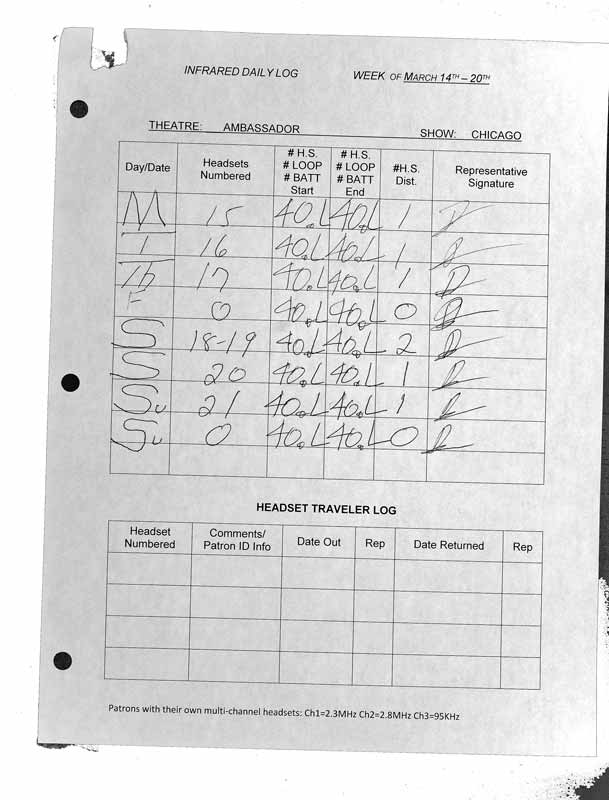 INFRARED DAILY LOG WEEK OF MARCH 14TH – 20TH
THEATRE: AMBASSADOR SHOW: CHICAGO
Day/Date Headsets Numbered # H.S. # LOOP # BATT Start # H.S. # LOOP # BATT End #H.S. Dist. Representative Signature
M 15 40.L 40.L 1
T 16 40.L 40.L 1
Th 17 40.L 40.L 1
F 0 40.L 40.L 0
S 18-19 40.L 40.L 2
S 20 40.L 40.L 1
Su 21 40.L 40.L 1
Su 0 40.L 40.L 0
HEADSET TRAVELER LOG
Headset Numbered Comments/ Patron ID Info Date Out Rep Date Returned Rep
Patrons with their own multi-channel headsets: Ch1=2.3MHz Ch2=2.8MHz Ch3=95KHz